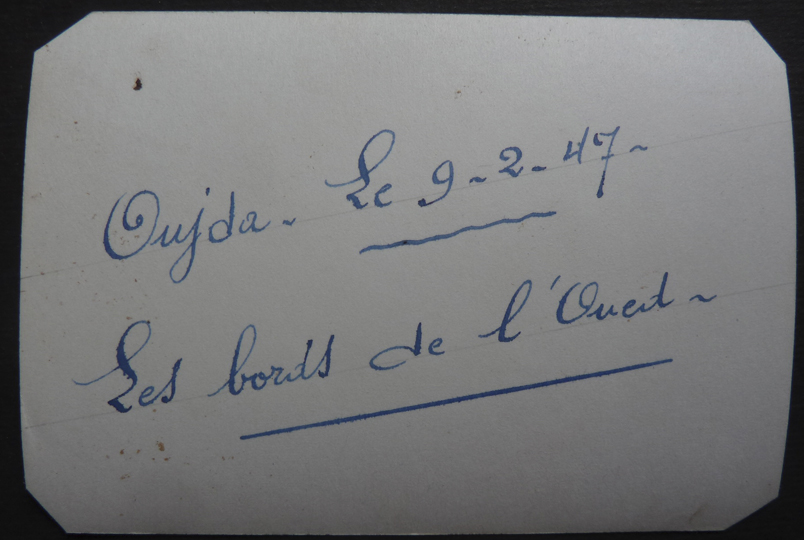 Oujda. Le 9-2-47-
Les bords de l'Oued-